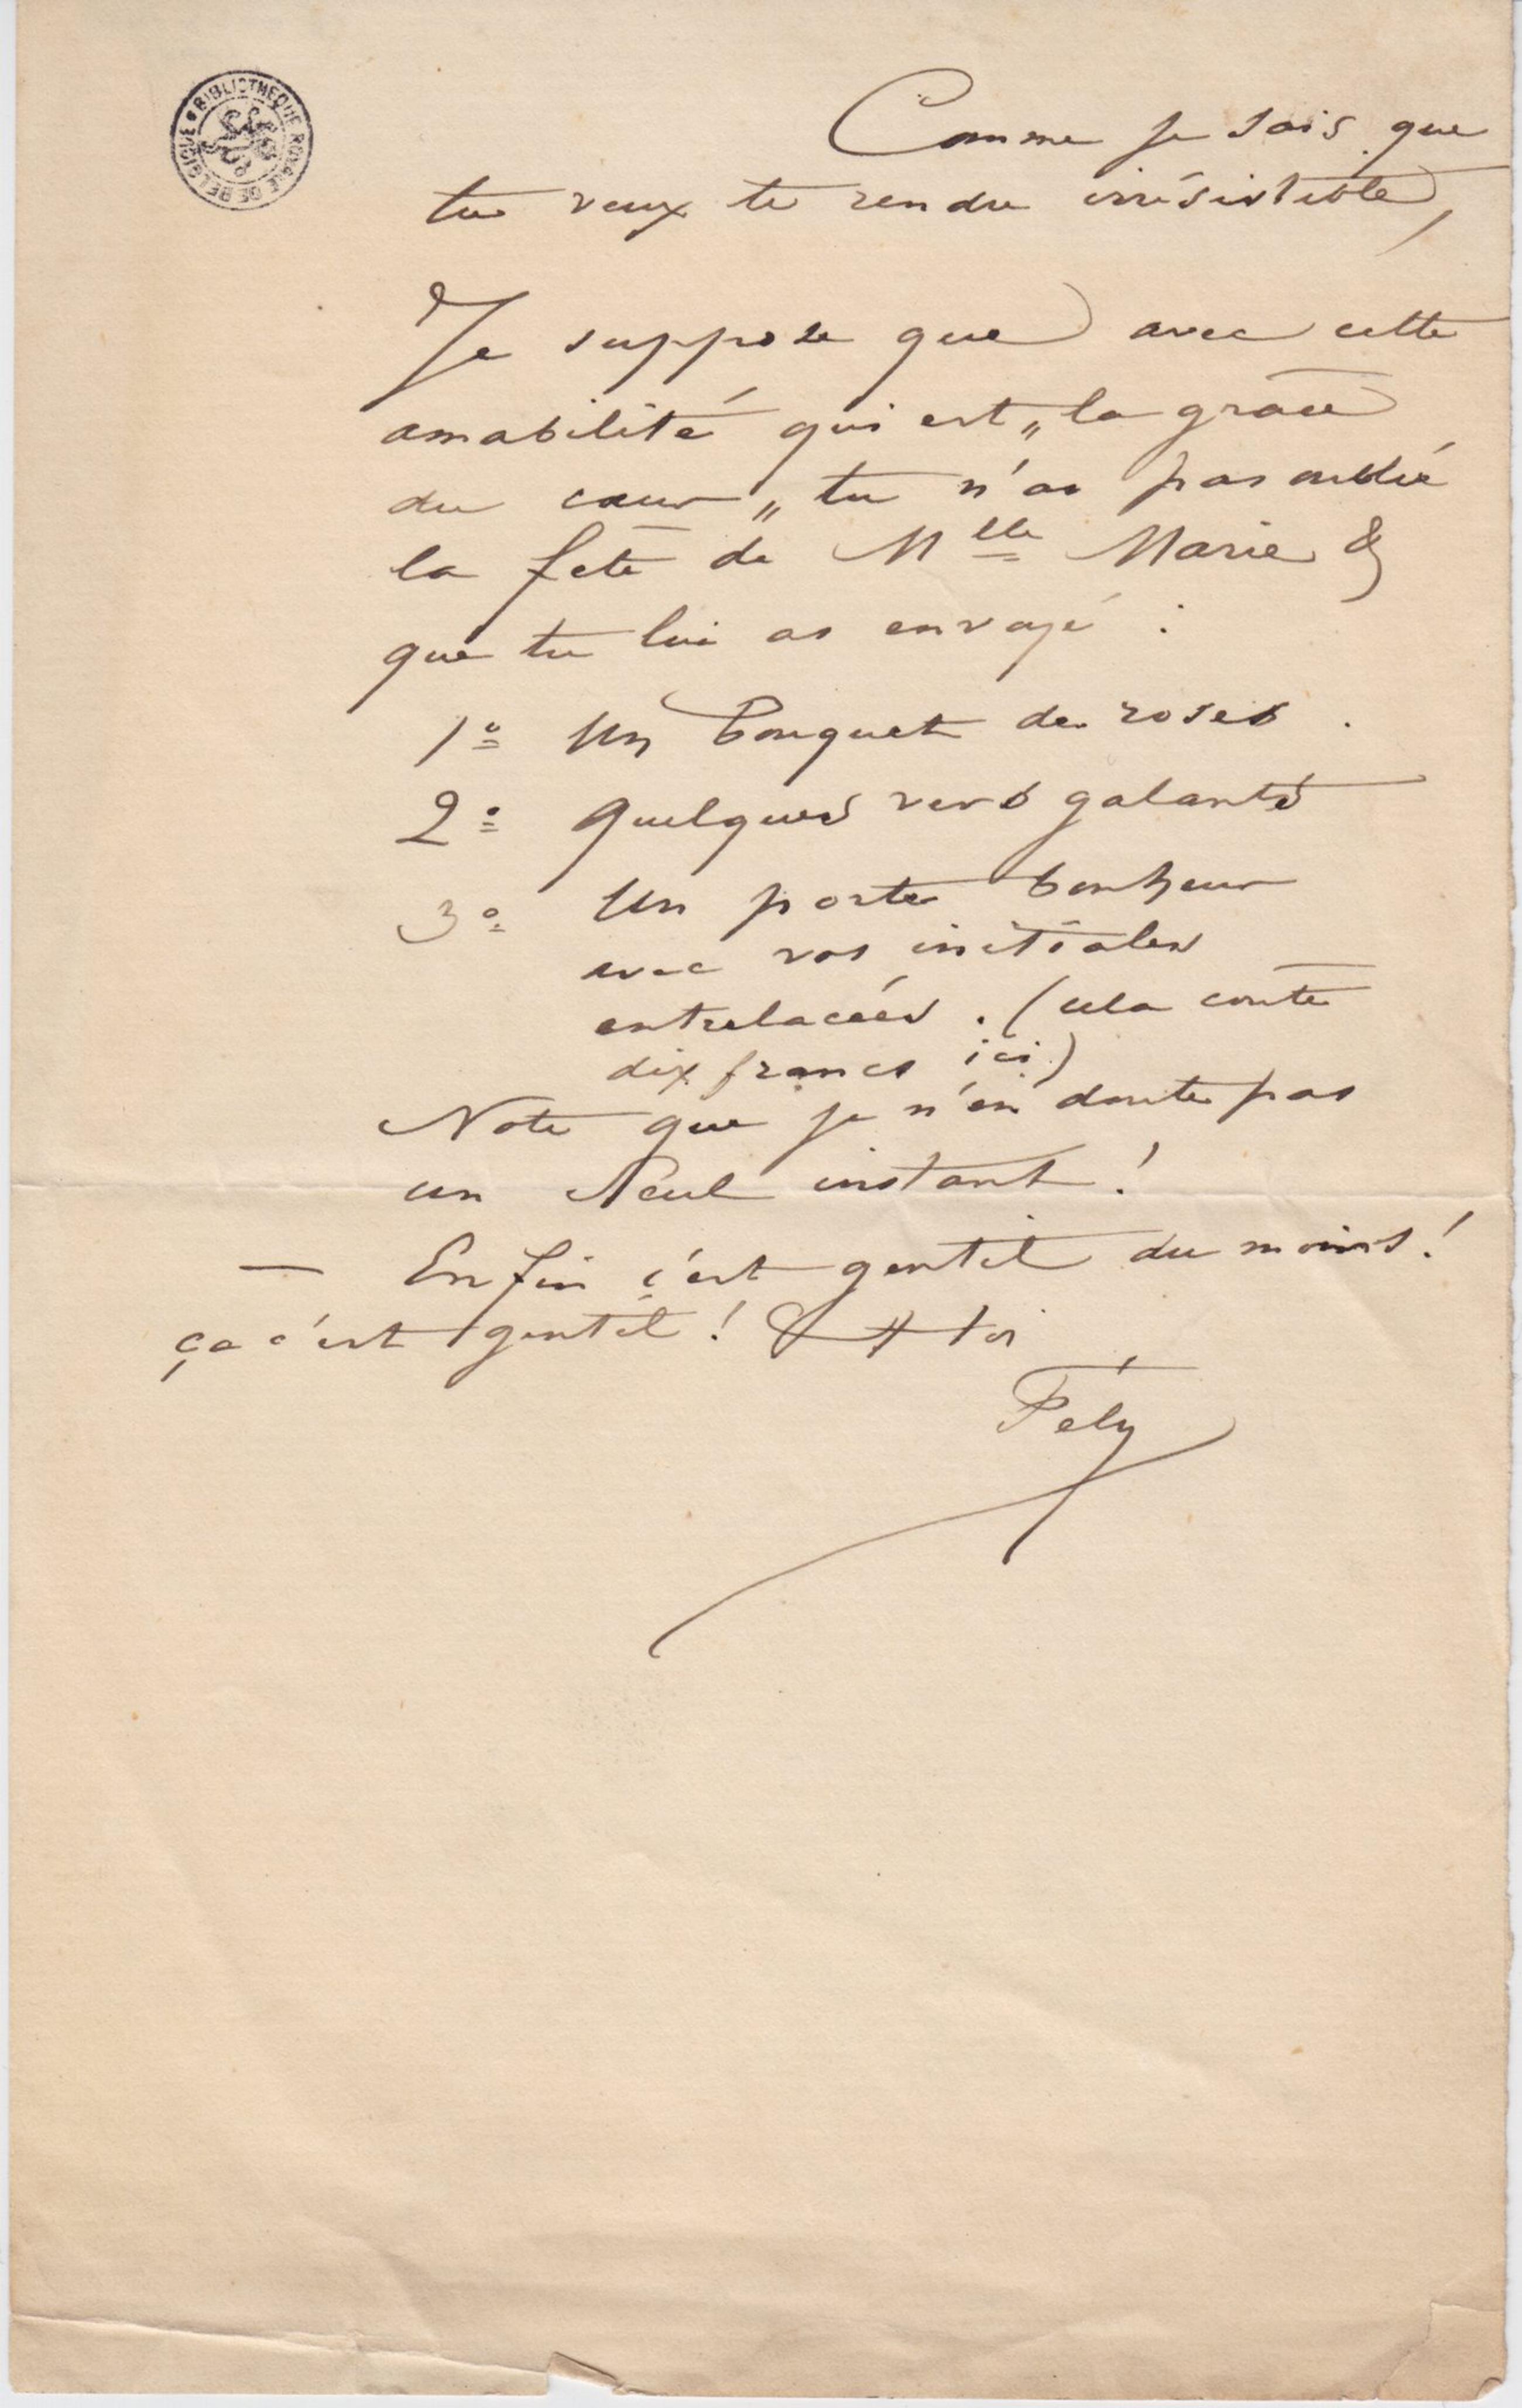 BIBLIOTHEQUE ROYALE DE BELGIQUE
Comme je sais que
tu veux te rendre irrésistible,
Je suppose que avec cette
amabilité qui est „la grâce
du cœur„ tu n'as pas oublié
la fête de Mlle Marie &
que tu lui as envoyé :
1º Un bouquet de roses.
2º Quelques vers galants
3º Un porte bonheur
avec vos initiales
entrelacées. (cela coute
dix francs ici)
Note que je n'en doute pas
un seul instant !
— Enfin c'est gentil du moins !
ça c'est gentil ! & A toi
Fély